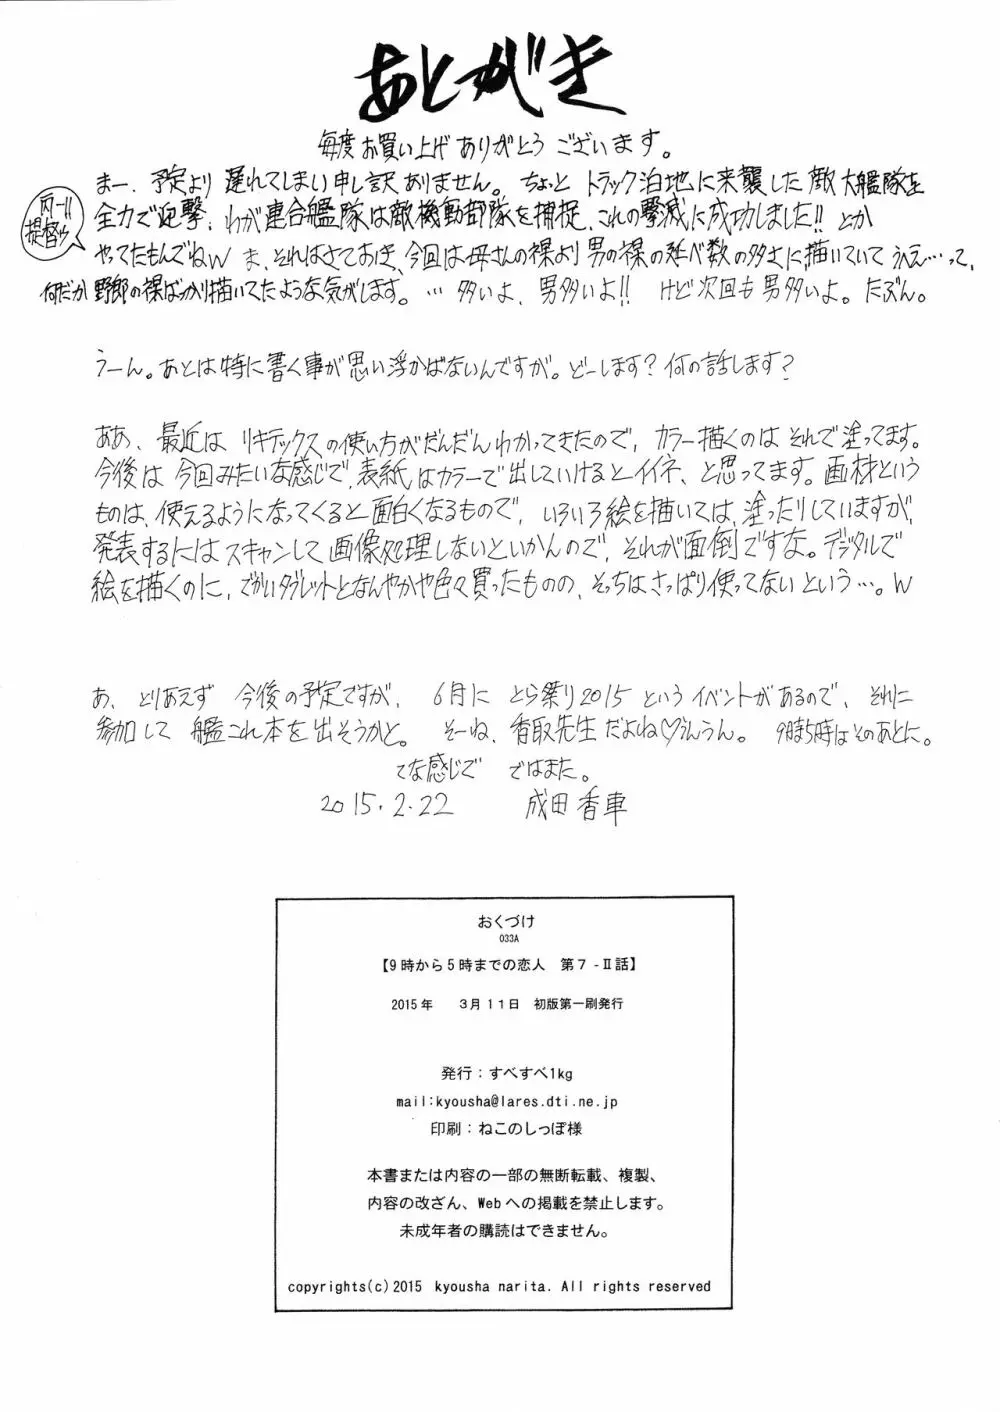 あとがき
毎度お買い上げありがとうございます。
まー、予定より遅れてしまい申し訳ありません。ちょっとトラック泊地に来襲した敵大艦隊を
全力で迎撃；わが連合艦隊は敵機動部隊を捕捉、これの撃滅に成功しました!!とか
提督ゥ
やってたもんでねw ま、それはさておき、今回は母さんの裸より男の裸の延べ数の多さに描いていてうへえ…って、
何だか野郎の裸ばっかり描いてたような気がします。…多いよ、男多いよ!!けど次回も男多いよ。たぶん。
うーん。あとは特に書く事が思い浮かばないんですが。どーします?何の話します?
ああ、最近はリキテックスの使い方がだんだんわかってきたので、カラー描くのはそれで塗ってます。
今後は今回みたいな感じで、表紙はカラーで出していけるとイイネ、と思ってます。画材という
ものは、使えるようになってくると面白くなるもので、いろいろ絵を描いては、塗ったりしていますが、
発表するにはスキャンして画像処理しないといかんので、それが面倒ですな。デジタルで
絵を描くのに、でかいタブレットとなんやかや色々買ったものの、そっちはさっぱり使ってないという…。w
あ、とりあえず今後の予定ですが、6月にとら祭り2015というイベントがあるので、それに
参加して艦これ本を出そうかと。そーね、香取先生だよね♡うんうん。9時5時はそのあとに。
てな感じで ではまた。
2015.2.22 成田香車
おくづけ
033A
【9時から5時までの恋人 第7-Ⅱ話】
2015年 3月11日 初版第一刷発行
発行：すべすべ1kg
mail:kyousha@lares.dti.ne.jp
印刷：ねこのしっぽ様
本書または内容の一部の無断転載、複製、
内容の改ざん、Webへの掲載を禁止します。
未成年者の購読はできません。
copyrights(c)2015 kyousha narita. All rights reserved